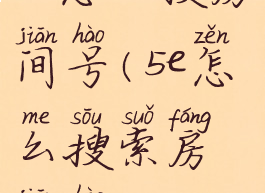 jiān hào zěn
间号(5e怎
me sōu suǒ fáng
么搜索房